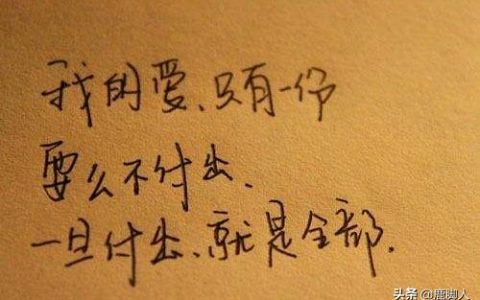 我的爱、只有一份
要么不付出、
一旦付出、就是全部.
头条 @鹿脚人